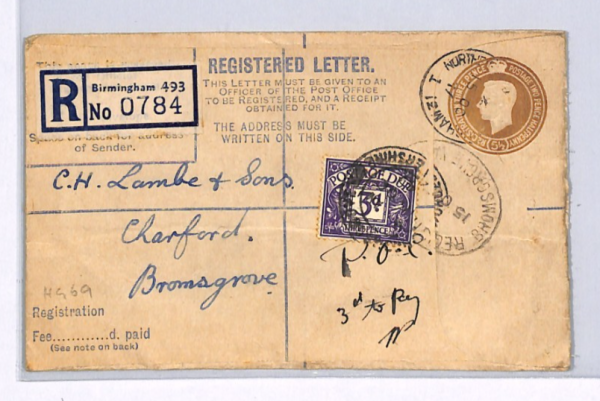 REGISTERED LETTER.
THIS LETTER MUST BE GIVEN TO AN
OFFICER OF THE POST OFFICE
TO BE REGISTERED, AND A RECEIPT
OBTAINED FOR IT.
THE ADDRESS MUST BE
WRITTEN ON THIS SIDE.
R
Birmingham 493
No 0784
of Sender.
POSTAGE DUE
3d
5½d
C.H. Lambe & Sons.
Charford.
Bromsgrove
3d to Pay
HG69
Registration
Fee............d. paid
(See note on back)